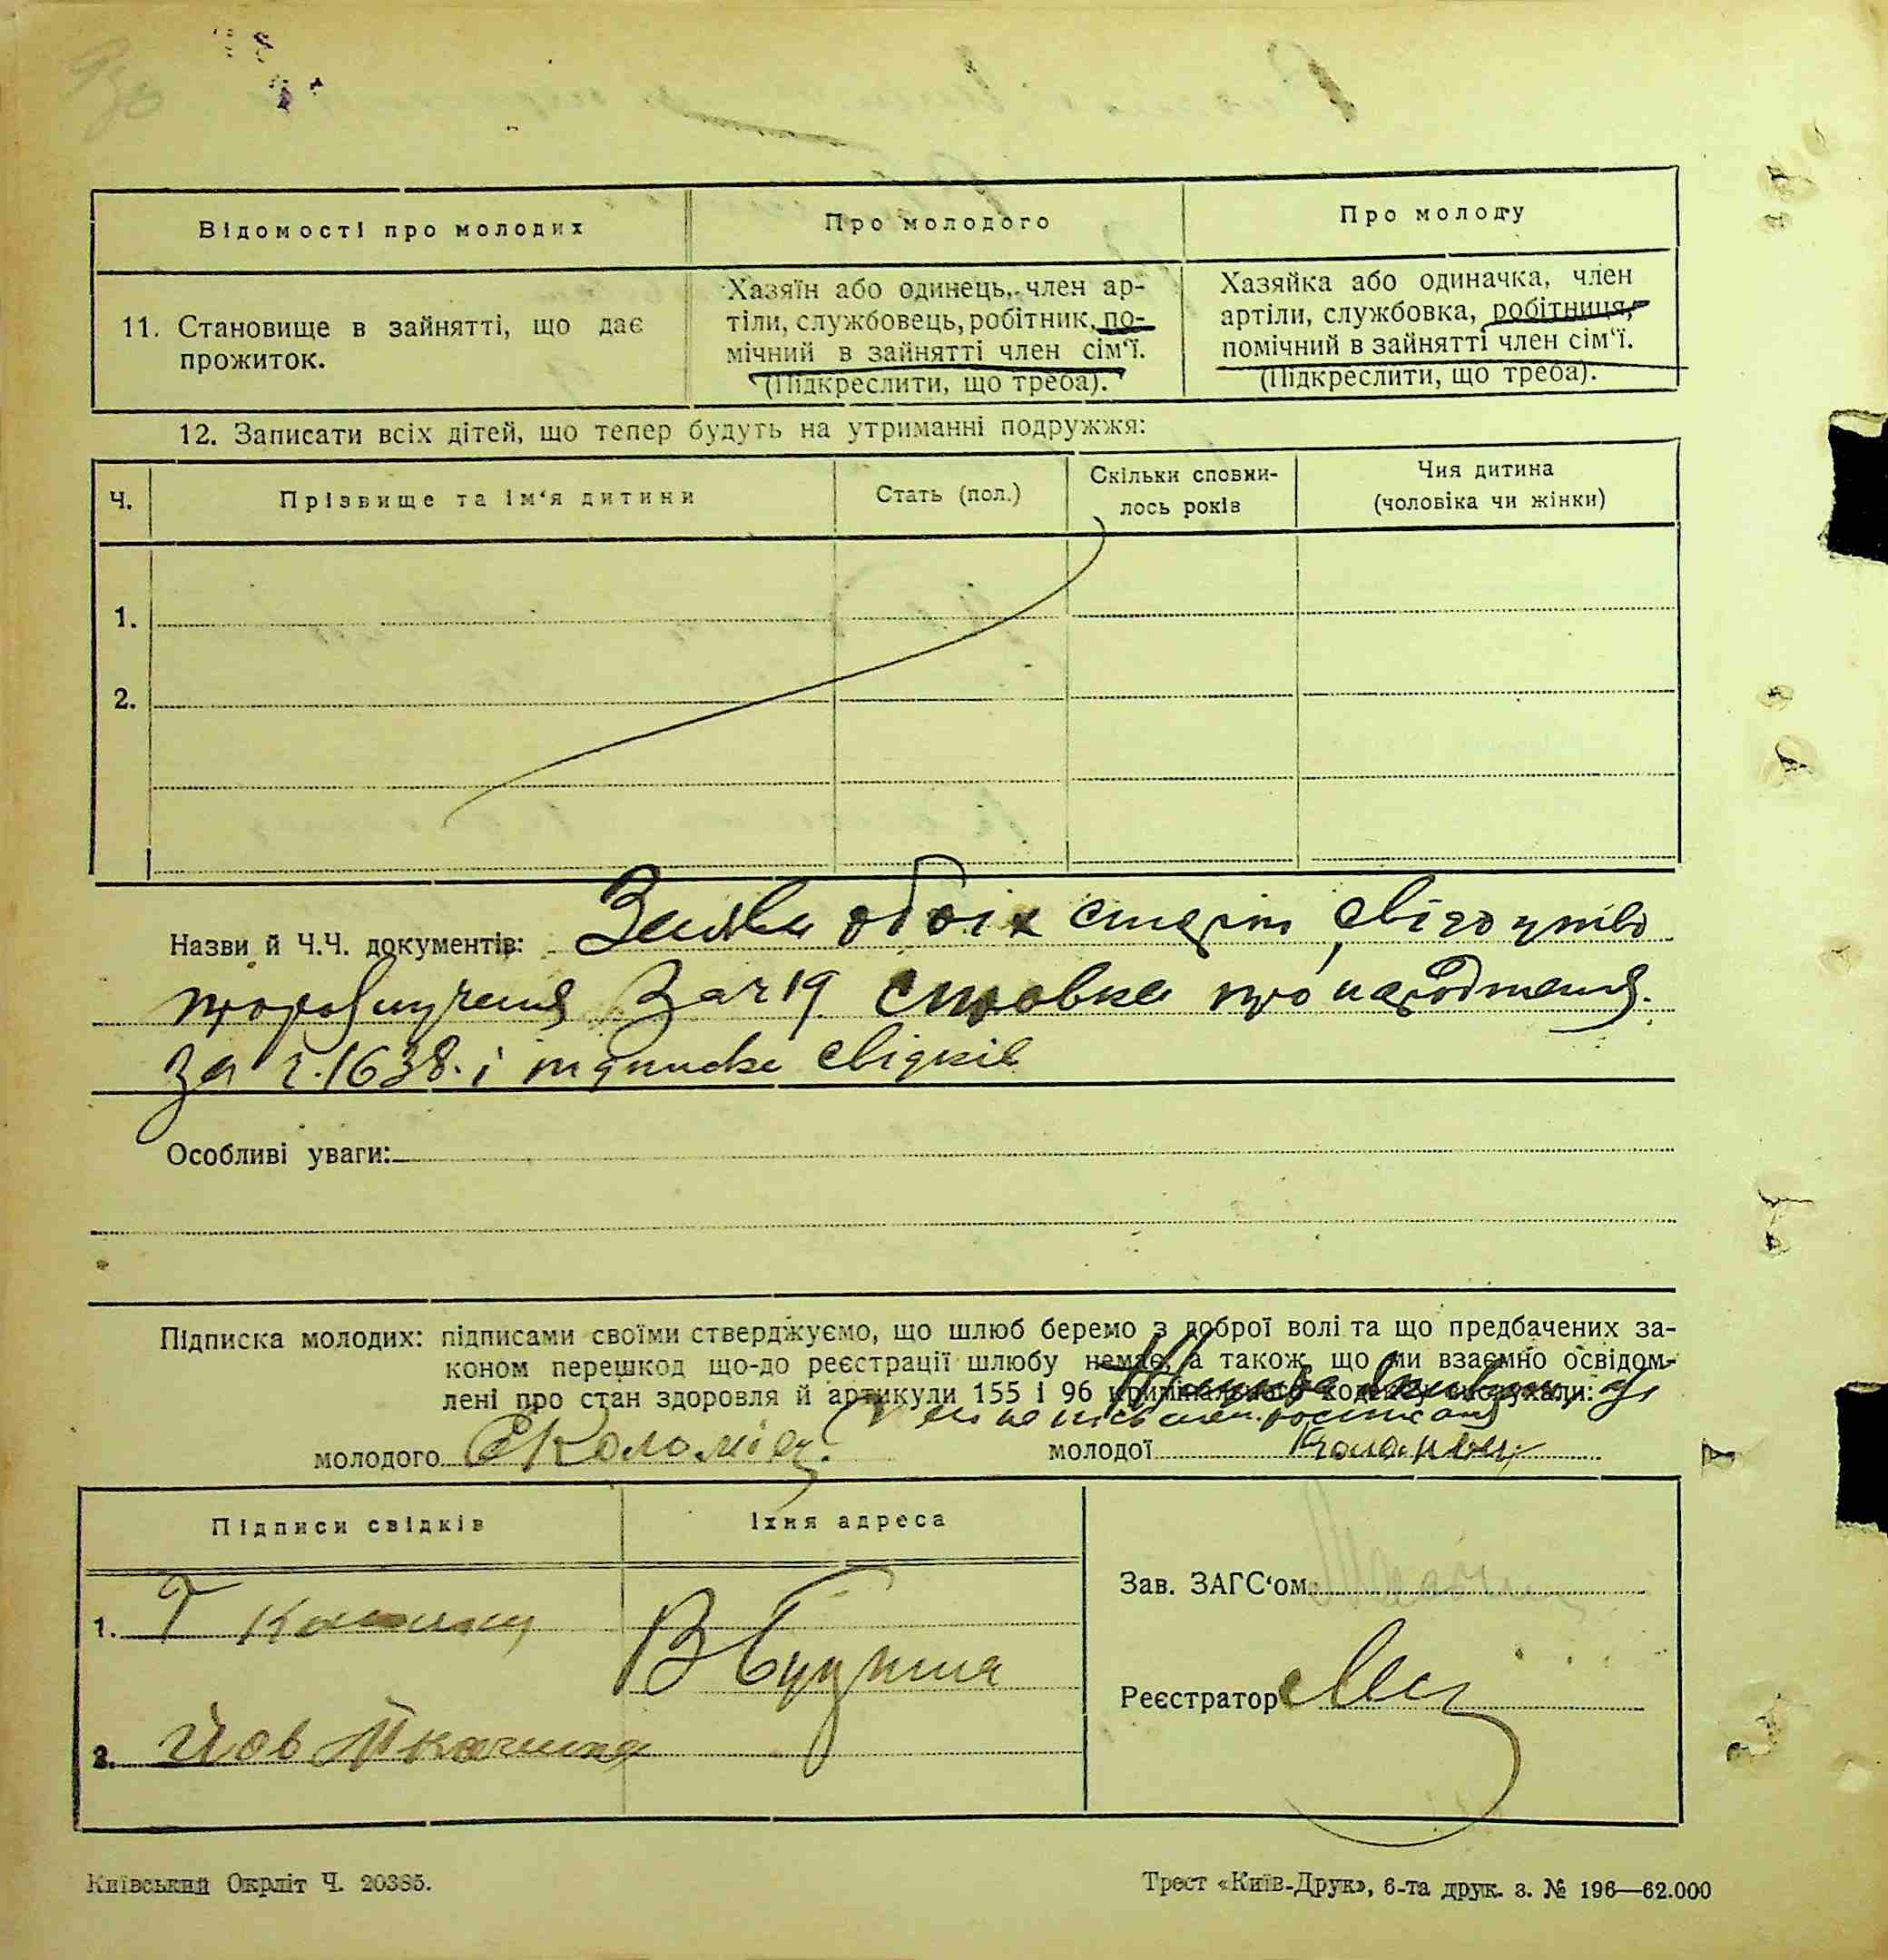 Відомості про молодих
Про молодого
Про молоду
11. Становище в зайнятті, що дає
прожиток.
Хазяїн або одинець, член ар-
тіли, службовець, робітник, по-
мічний в зайнятті член сім'ї.
(Підкреслити, що треба).
Хазяйка або одиначка, член
артіли, службовка, робітниця,
помічний в зайнятті член сім'ї.
(Підкреслити, що треба).
12. Записати всіх дітей, що тепер будуть на утриманні подружжя:
Ч.
Прізвище та ім'я дитини
Стать (пол.)
Скільки сповни-
лось років
Чия дитина
(чоловіка чи жінки)
1.
2.
Назви й Ч.Ч. документів: Заява обоїх сторін,
за ч 19 про народження
за ч. 1638. і підписка свідків
Особливі уваги:
Підписка молодих: підписами своїми стверджуємо, що шлюб беремо з доброї волі та що предбачених за-
коном перешкод що-до реєстрації шлюбу немає, а також, що ми взаємно освідом-
лені про стан здоров'я й артикули 155 і 96 кримінального кодексу вислухали:
молодого Коломієц.
молодої
Підписи свідків
Їхня адреса
1. Т
2. Йов
Зав. ЗАГС'ом
Реєстратор
Київський Окрліт Ч. 20385.
Трест «Київ-Друк», 6-та друк. з. № 196—62.000